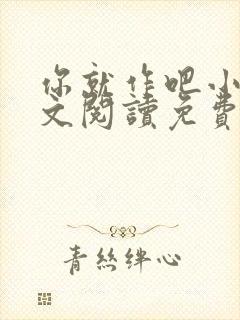 你就作吧小
文閱讀免費
青絲絆心